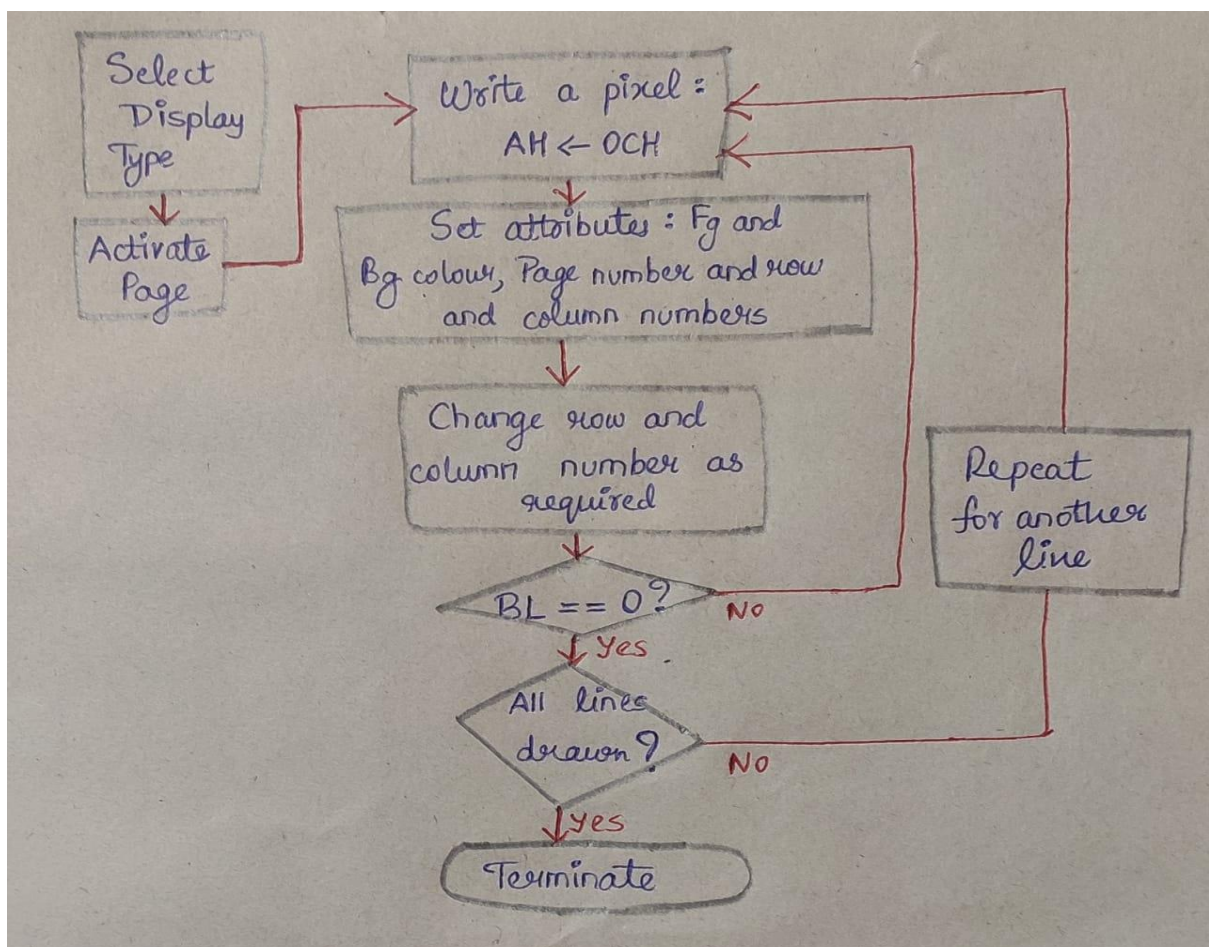 Select
Display
Type
Activate
Page
Write a pixel :
AH ← OCH
Set attributes : Fg and
Bg colour, Page number and row
and column numbers
Change row and
column number as
required
BL == 0?
No
Yes
All lines
drawn?
No
Yes
Terminate
Repeat
for another
line